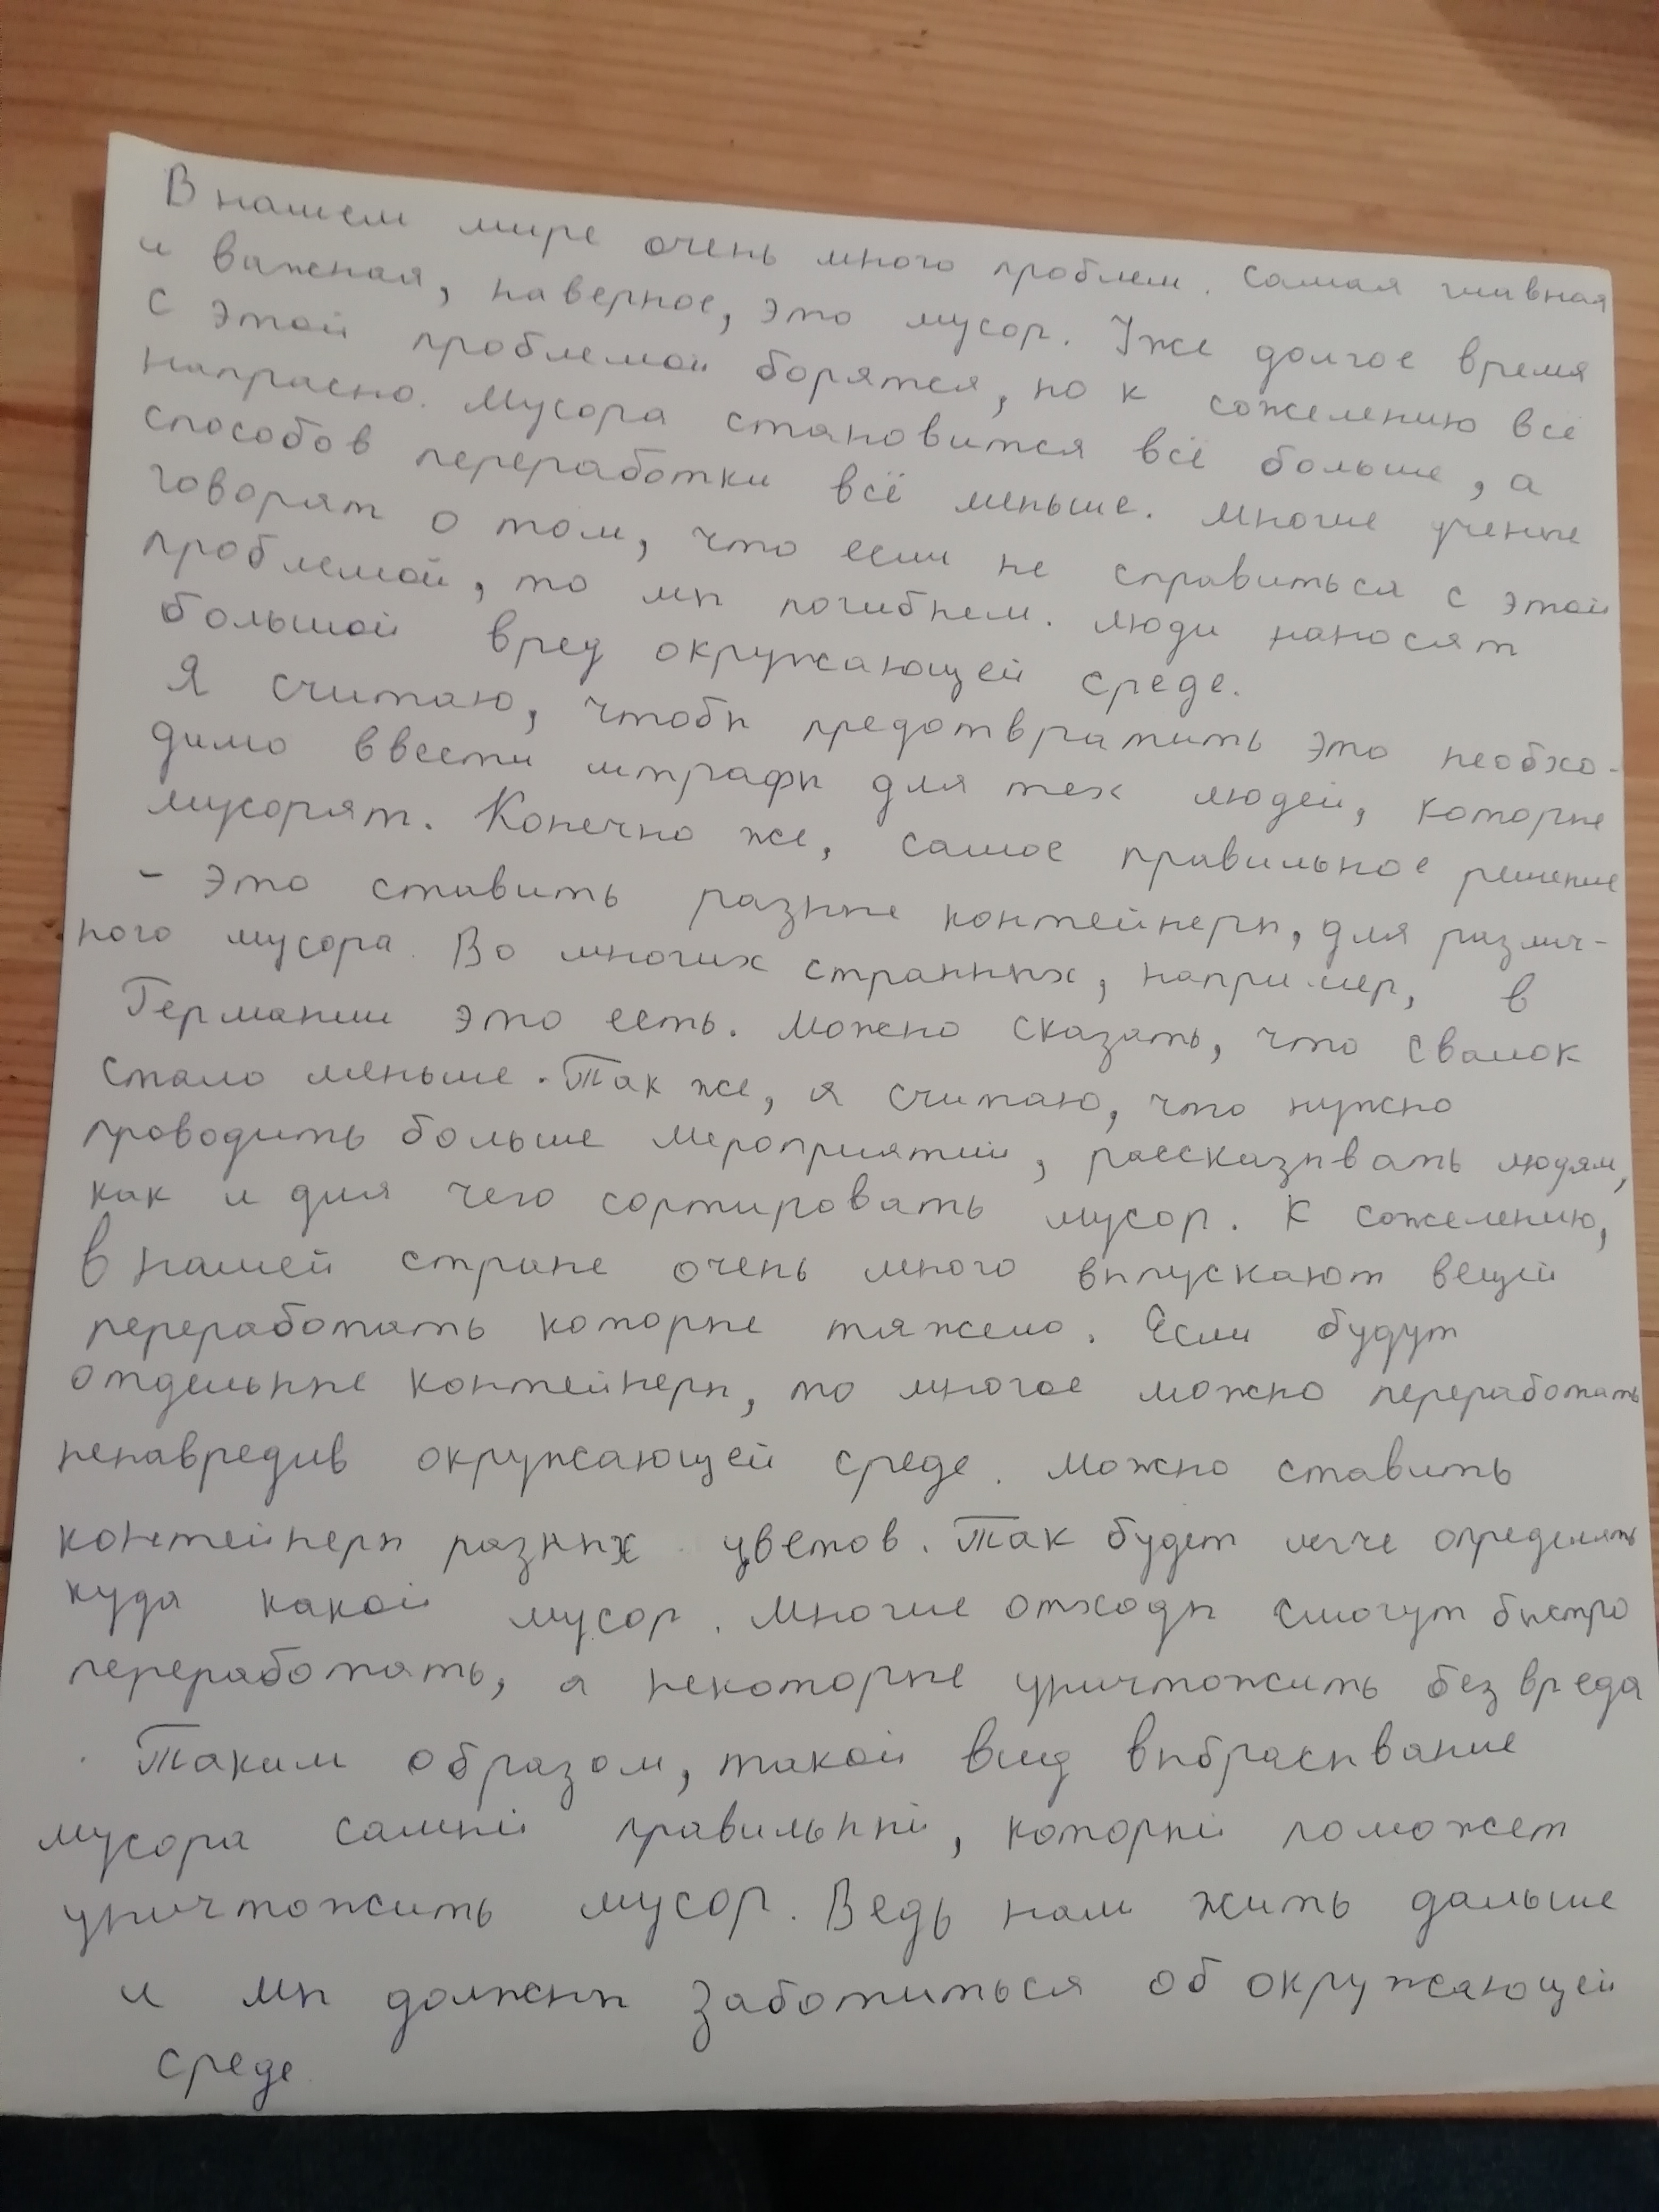 В нашем мире очень много проблем. Самая главная
и важная, наверное, это мусор. Уже долгое время
с этой проблемой борятся, но к сожелению всё
напрасно. Мусора становится всё больше, а
способов переработки всё меньше. Многие ученые
говорят о том, что если не справиться с этой
проблемой, то мы погибнем. Люди наносят
большой вред окружающей среде.
Я считаю, чтобы предотвратить это необхо-
димо ввести штрафы для тех людей, которые
мусорят. Конечно же, самое правильное решение
- это ставить разные контейнеры, для различ-
ного мусора. Во многих странных, например, в
Германии это есть. Можно сказать, что свалок
стало меньше. Так же, я считаю, что нужно
проводить больше мероприятий, рассказывать людям,
как и для чего сортировать мусор. К сожелению,
в нашей стране очень много выпускают вещей
переработать которые тяжело. Если будут
отдельные контейнеры, то многое можно переработать
ненавредив окружающей среде. Можно ставить
контейнеры разных цветов. Так будет легче определять
куда какой мусор. Многие отходы смогут быстро
переработать, а некоторые уничтожить без вреда
. Таким образом, такой вид выбрасывание
мусора самый правильный, который поможет
уничтожить мусор. Ведь нам жить дальше
и мы должны заботиться об окружающей
среде